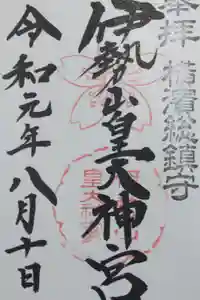 奉拝 横濱総鎮守
伊勢山皇大神宮
令和元年八月十日